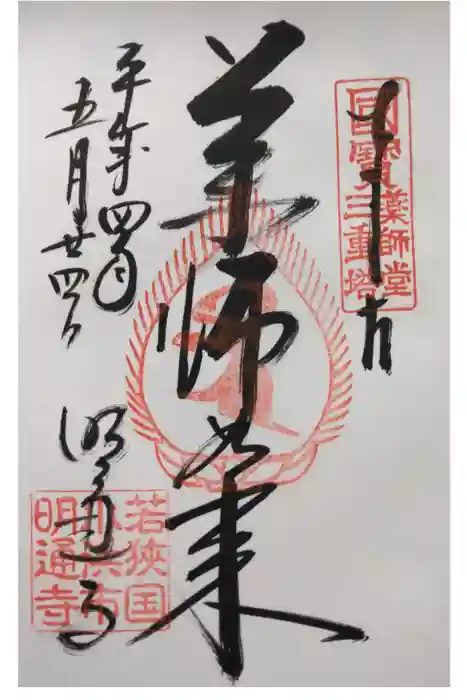 奉拝
國寶
薬師堂
三重塔
薬師如来
平成四年
五月廿四日
明通寺
若狭国
小浜市
明通寺